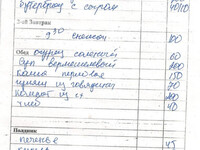 бутерброд с сыром 40/10
2-ой Завтрак
- 9³⁰ снежок 100
Обед огурец соленый 60
Суп вермишелевый
Каша перловая 150
из говядины 70
Компот из
хлеб 40
Полдник
печенье 45